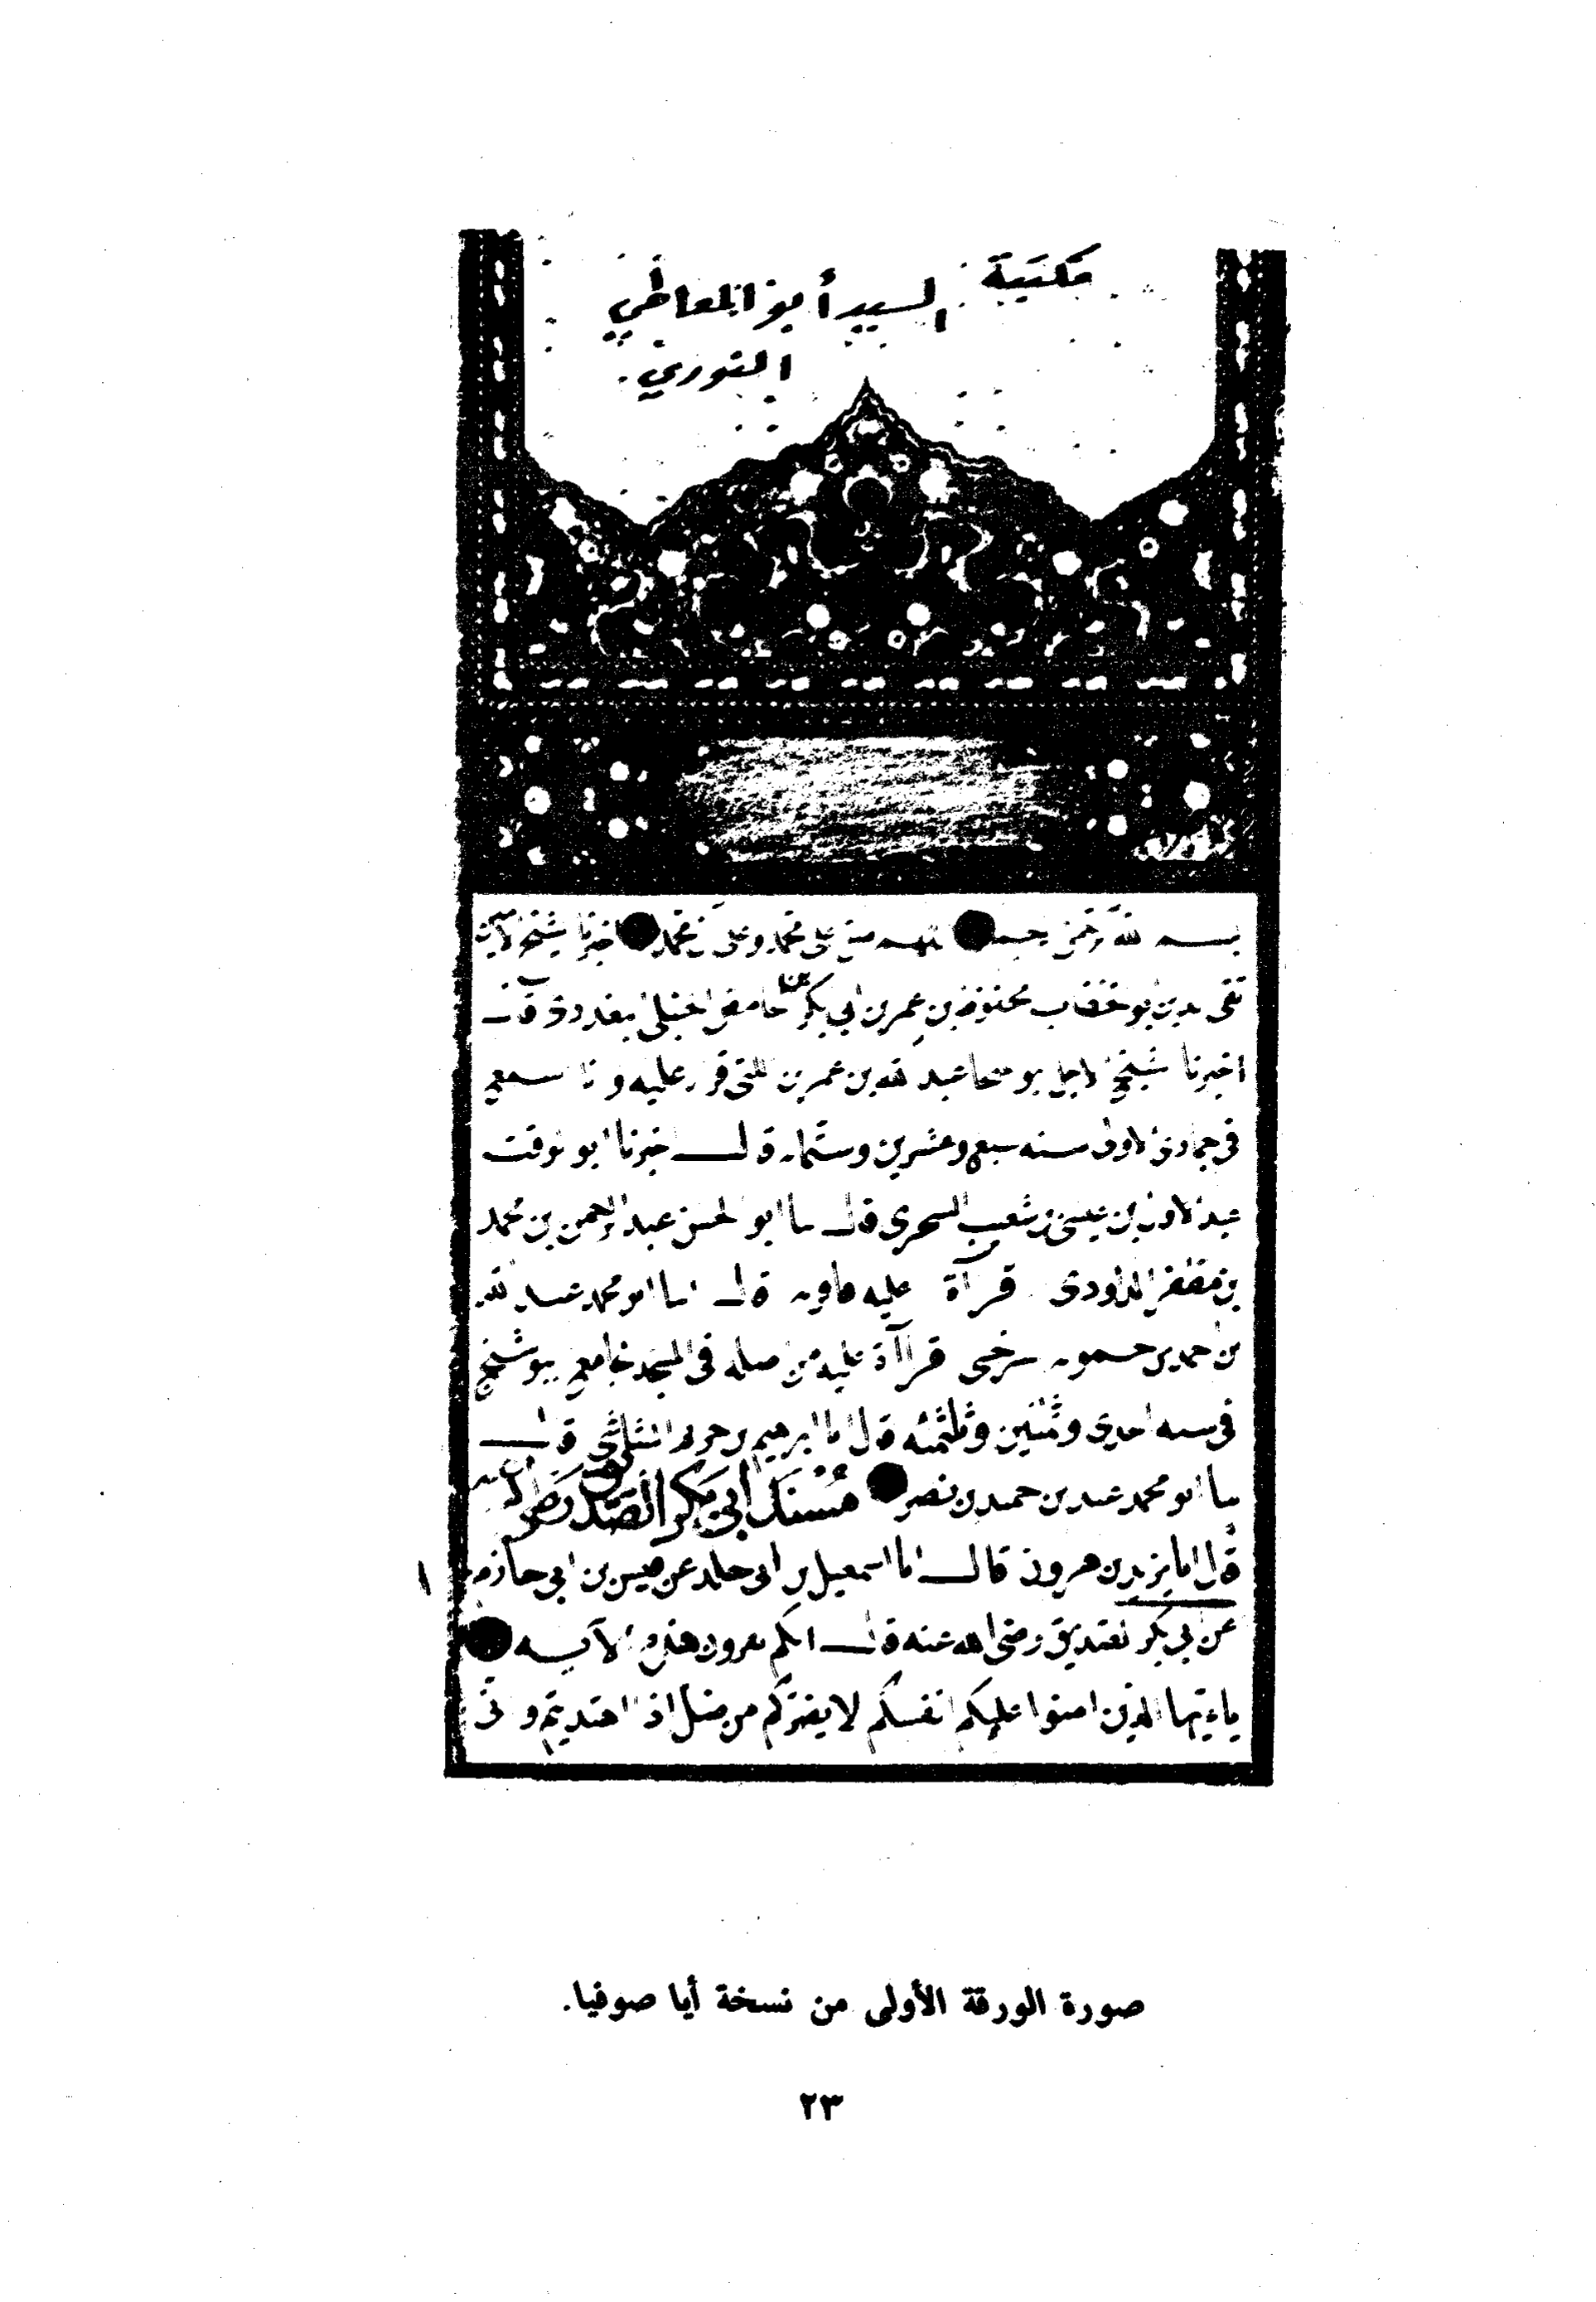 مكتبة السيد أبو المعاطي
النوري.
بسم الله الرحمن الرحيم اللهم صل على محمد وعلى آل محمد اخبرنا الشيخ
تقى الدين ابو الخطاب محفوظ بن عمر بن ابي بكر الحنبلى البغدادى قال
اخبرنا الشيخ الاجل ابو المنجا عبد الله بن عمر بن اللتى قراءة عليه وانا اسمع
فى جمادى الاولى سنه سبع وعشرين وستمايه قال اخبرنا ابو الوقت
عبد الاول بن عيسى بن شعيب السجزى قال انا ابو الحسن عبد الرحمن بن محمد
بن المظفر الداودى قرآة عليه قال انا ابو محمد عبد الله
بن احمد بن حمويه السرخسى قرااة عليه من اصله فى المسجد الجامع ببوشنج
فى سنه احدى وثمنين وثلثمئه قال انا ابرهيم بن خريم الشاشى قال
انا ابو محمد عبد بن حميد بن نصر مُسْنَد ابى بكر الصديق رضى الله عنه
قال انا يزيد بن هرون قال انا اسمعيل بن ابى خالد عن قيس بن ابى حازم ١
عن ابى بكر الصديق رضى الله عنه قال انكم تقرون هذه الآيه
يا ءيها الذين امنوا عليكم انفسكم لا يضركم من ضل اذا اهتديتم
صورة الورقة الأولى من نسخة أيا صوفيا.
٢٣